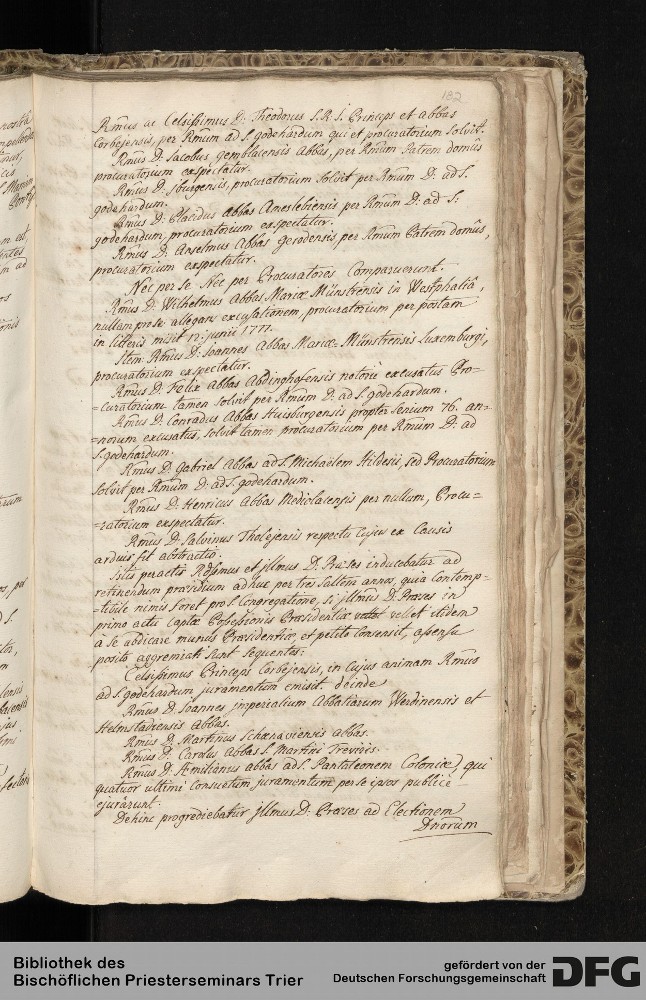 182
Rmus ac Celsissimus D: Theodorus S.R.I. Princeps et abbas
Corbejensis, per Rmum ad S. godehardum qui et procuratorium solvit.
Rmus D. Jacobus, gemblacensis Abbas, per Rmum Patrem domûs
procuratorium exspectatur.
Rmus D. Iburgensis, procuratorium solvit per Rmum D: ad S.
godehardum.
Rmus D: Placidus abbas Ameslebiensis per Rmum D: ad S:
godehardum, procuratorium exspectatur.
Rmus D. Anselmus Abbas gerodensis per Rmum Patrem domûs,
procuratorium exspectatur.
Nec per se Nec per Procuratores Comparuerunt.
Rmus D: Wilhelmus Abbas Mariæ Münstrensis in Westphaliâ,
nullam pro se allegans excusationem, procuratorium per postam
in litteris misit 12. junii 1777.
Item Rmus D: Joannes Abbas Mariæ Münstrensis Luxemburgi,
procuratorium exspectatur.
Rmus D. Felix Abbas Abdinghofensis notoriè excusatus Pro=
=curatorium tamen solvit per Rmum D: ad S. godehardum.
Rmus D. Conradus Abbas Huisburgensis propter senium 76. an=
=norum excusatus, solvit tamen procuratorium per Rmum D: ad
S. godehardum.
Rmus D. gabriel Abbas ad S. Michaëlem Hildesii, sed Procuratorium
solvit per Rmum D: ad S. godehardum.
Rmus D. Henricus Abbas Mediolacensis per nullum, Procu=
=ratorium exspectatur.
Rmus D. Salvinus Tholejensis respectu cujus ex Causis
arduis fit abstractio.
Istis peractis Rdssmus et jllmus D. Præses inducebatur ad
retinendum præsidium adhuc per tres saltem annos, quia contemp=
=tibile nimis foret pro S. Congregatione, si jllmus D. Præses in
primo actu captæ Possessionis Præsidentiæ vellet itidem
à se abdicare munus Præsidentiæ, et petito Consensit, assensu
posito aggremiati sunt sequentes:
Celsissimus Princeps Corbejensis, in cujus animam Rmus
ad S. godehardum juramentum emisit. deinde
Rmus D. Joannes imperialium Abbatiarum Werdinensis et
Helmstadiensis abbas.
Rmus D. Martinus Schœnaviensis abbas.
Rmus D. Carolus Abbas S. Martini Treviris.
Rmus D. Æmilianus abbas ad S. Pantaleonem Coloniæ, qui
quatuor ultimi consuetum juramentum per se ipsos publicè
ejurarunt.
Dehinc progrediebatur jllmus D. Præses ad Electionem
Dnorum
Bibliothek des
Bischöflichen Priesterseminars Trier
gefördert von der
Deutschen Forschungsgemeinschaft
DFG